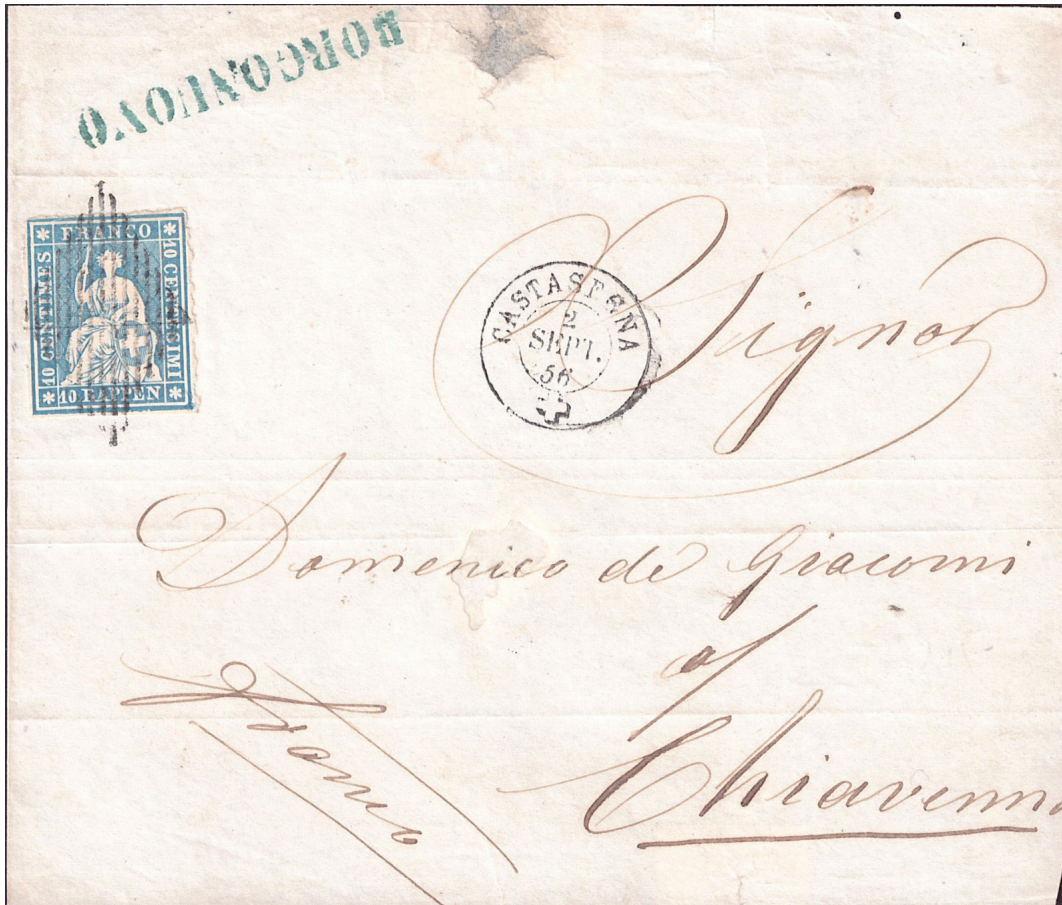 BORGONUOVO
FRANCO
10 CENTIMES
10 CENTESIMI
10 RAPPEN
CASTASEGNA
2
SEPT.
56
Signor
Domenico de Giacomi
a
Chiavenn
franco